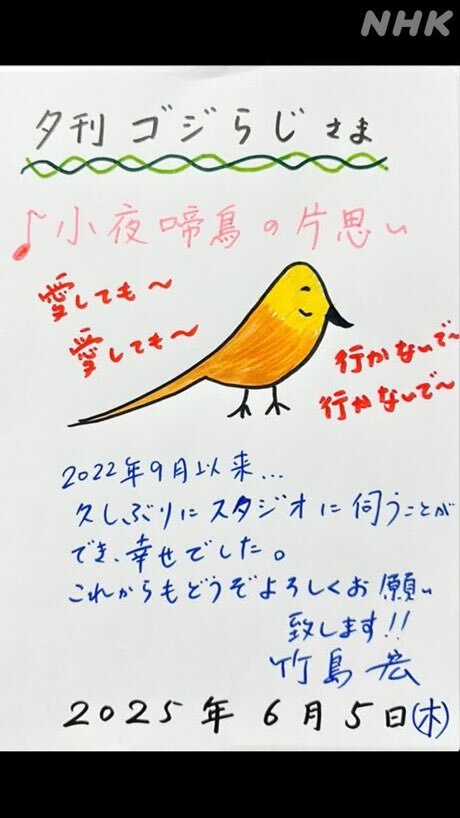 NHK
夕刊 ゴジらじ さま
♪小夜啼鳥の片思い
愛しても〜
愛しても〜
行かないで〜
行かないで〜
2022年9月以来...
久しぶりにスタジオに伺うことが
でき、幸せでした。
これからもどうぞよろしくお願い
致します!!
竹島 宏
2025年 6月 5日(木)